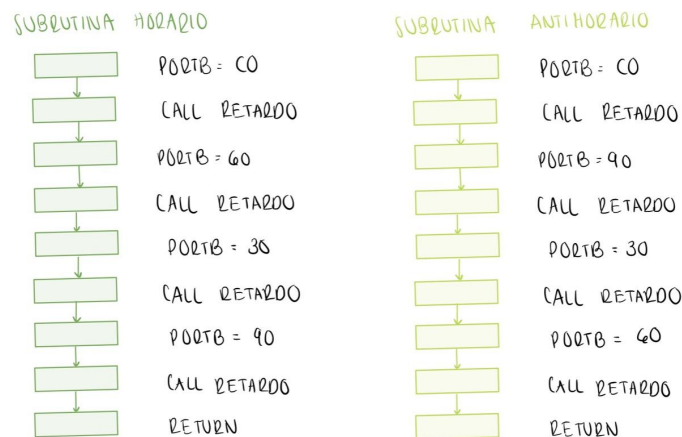 SUBRUTINA HORARIO
PORTB = C0
CALL RETARDO
PORTB = 60
CALL RETARDO
PORTB = 30
CALL RETARDO
PORTB = 90
CALL RETARDO
RETURN
SUBRUTINA ANTIHORARIO
PORTB = C0
CALL RETARDO
PORTB = 90
CALL RETARDO
PORTB = 30
CALL RETARDO
PORTB = 60
CALL RETARDO
RETURN